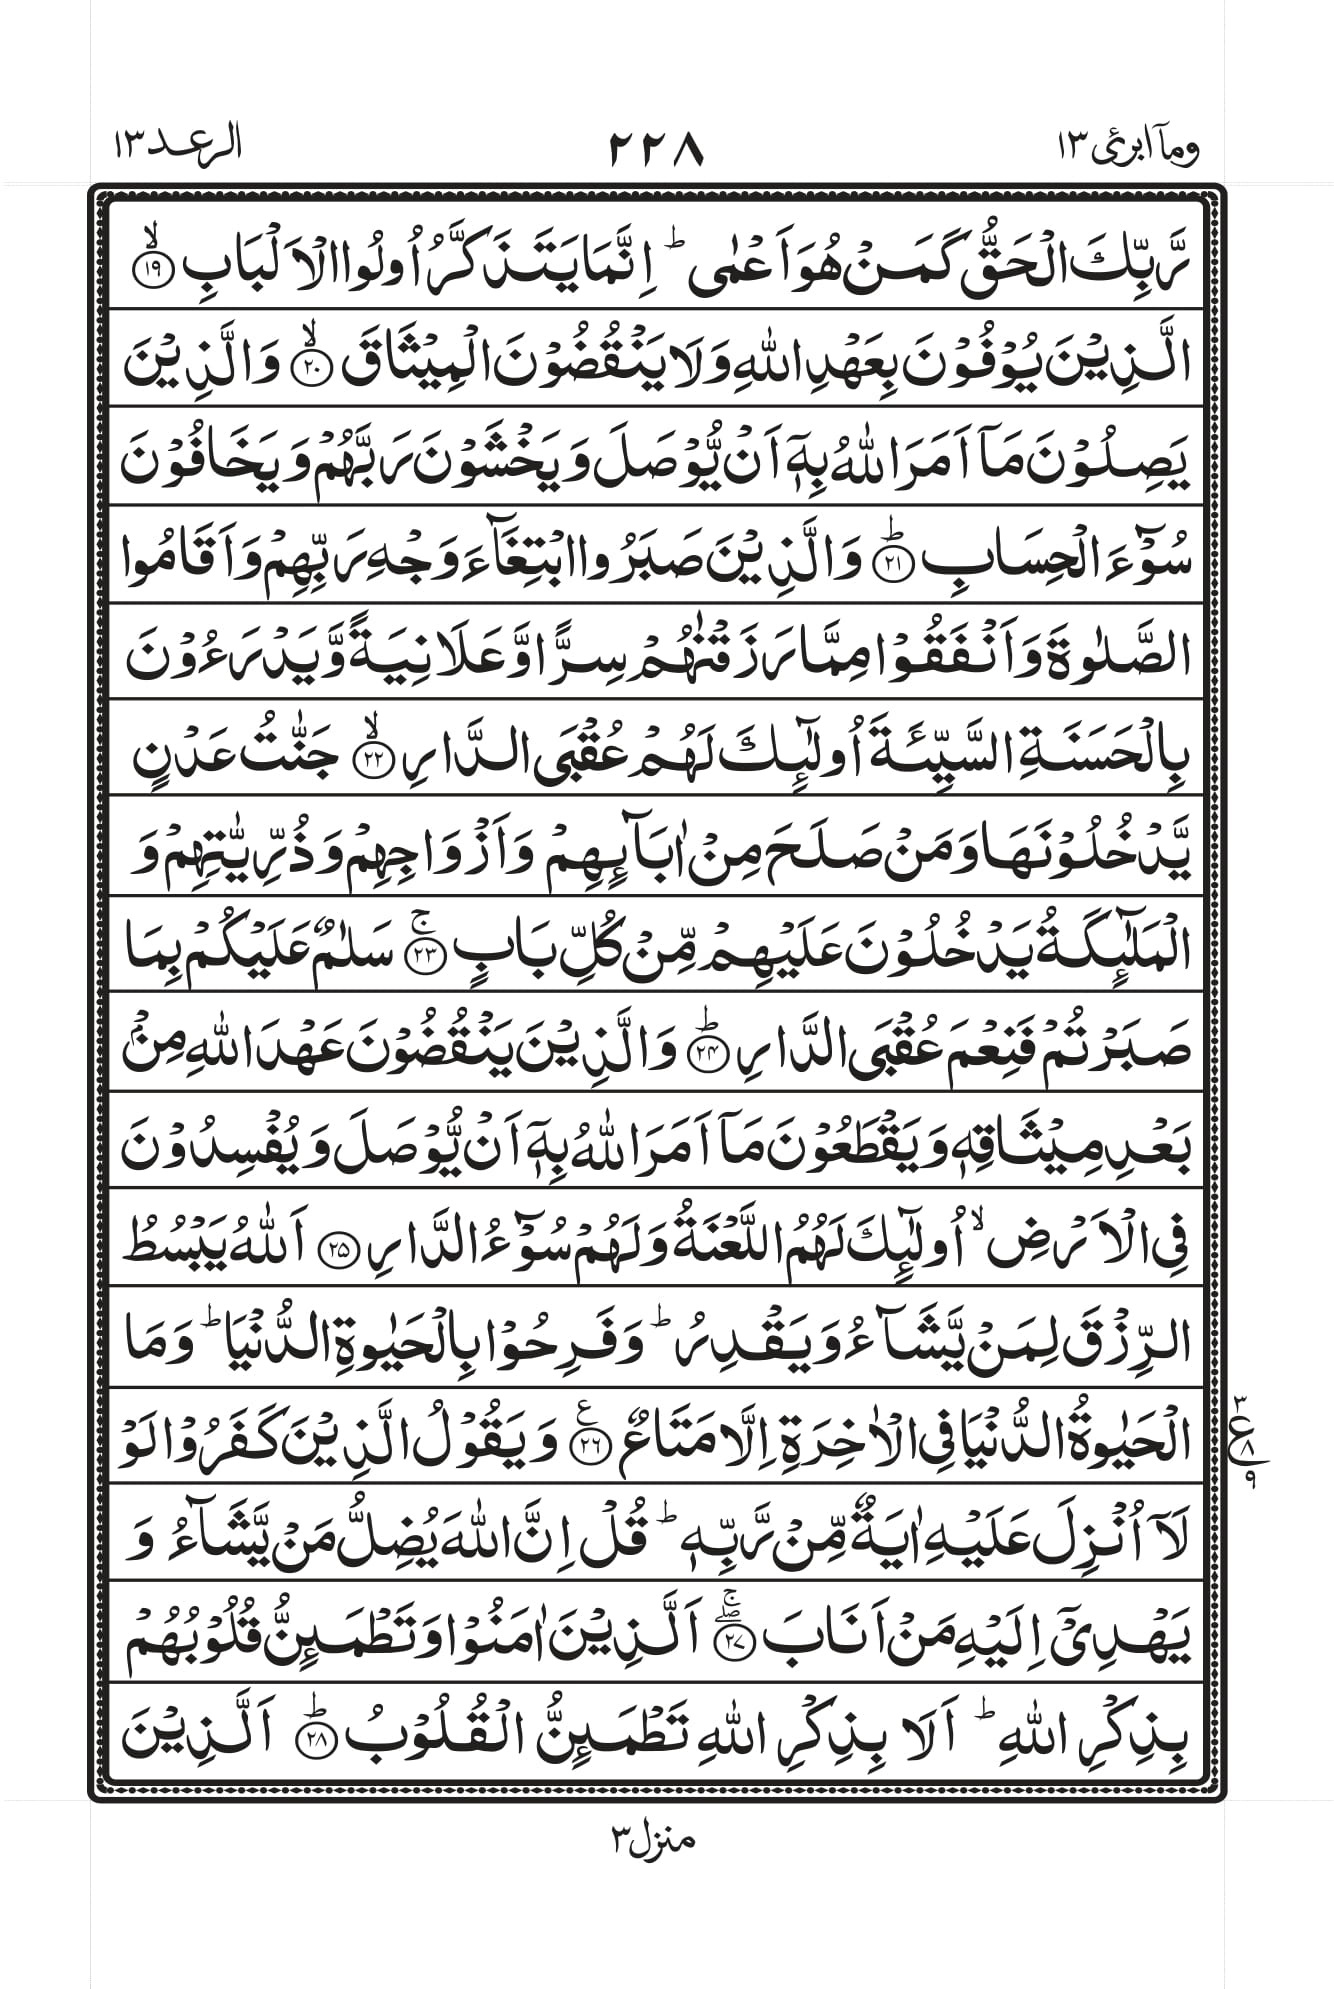 وماۤ ابرئ ١٣
٢٢٨
الرعد ١٣
رَّبِّكَ الْحَقُّ كَمَنْ هُوَ اَعْمٰى ؕ اِنَّمَا يَتَذَكَّرُ اُولُوا الْاَلْبَابِ ۙ‏﴿۱۹﴾
الَّذِيْنَ يُوْفُوْنَ بِعَهْدِ اللّٰهِ وَلَا يَنْقُضُوْنَ الْمِيْثَاقَ ۙ‏﴿۲۰﴾ وَالَّذِيْنَ
يَصِلُوْنَ مَاۤ اَمَرَ اللّٰهُ بِهٖۤ اَنْ يُّوْصَلَ وَيَخْشَوْنَ رَبَّهُمْ وَيَخَافُوْنَ
سُوْٓءَ الْحِسَابِ ؕ‏﴿۲۱﴾ وَالَّذِيْنَ صَبَرُوا ابْتِغَآءَ وَجْهِ رَبِّهِمْ وَاَقَامُوا
الصَّلٰوةَ وَاَنْفَقُوْا مِمَّا رَزَقْنٰهُمْ سِرًّا وَّعَلَانِيَةً وَّيَدْرَءُوْنَ
بِالْحَسَنَةِ السَّيِّئَةَ اُولٰٓئِكَ لَهُمْ عُقْبَى الدَّارِ ۙ‏﴿۲۲﴾ جَنّٰتُ عَدْنٍ
يَّدْخُلُوْنَهَا وَمَنْ صَلَحَ مِنْ اٰبَآئِهِمْ وَاَزْوَاجِهِمْ وَذُرِّيّٰتِهِمْ وَ
الْمَلٰٓئِكَةُ يَدْخُلُوْنَ عَلَيْهِمْ مِّنْ كُلِّ بَابٍ ۚ‏﴿۲۳﴾ سَلٰمٌ عَلَيْكُمْ بِمَا
صَبَرْتُمْ فَنِعْمَ عُقْبَى الدَّارِ ؕ‏﴿۲۴﴾ وَالَّذِيْنَ يَنْقُضُوْنَ عَهْدَ اللّٰهِ مِنْۢ
بَعْدِ مِيْثَاقِهٖ وَيَقْطَعُوْنَ مَاۤ اَمَرَ اللّٰهُ بِهٖۤ اَنْ يُّوْصَلَ وَيُفْسِدُوْنَ
فِى الْاَرْضِ ۙ اُولٰٓئِكَ لَهُمُ اللَّعْنَةُ وَلَهُمْ سُوْٓءُ الدَّارِ ‏﴿۲۵﴾ اَللّٰهُ يَبْسُطُ
الرِّزْقَ لِمَنْ يَّشَآءُ وَيَقْدِرُ ؕ وَفَرِحُوْا بِالْحَيٰوةِ الدُّنْيَا ؕ وَمَا
الْحَيٰوةُ الدُّنْيَا فِى الْاٰخِرَةِ اِلَّا مَتَاعٌ ‏﴿۲۶﴾ ع وَيَقُوْلُ الَّذِيْنَ كَفَرُوْا لَوْ
٣ ع ٨ ٩
لَاۤ اُنْزِلَ عَلَيْهِ اٰيَةٌ مِّنْ رَّبِّهٖ ؕ قُلْ اِنَّ اللّٰهَ يُضِلُّ مَنْ يَّشَآءُ وَ
يَهْدِىْۤ اِلَيْهِ مَنْ اَنَابَ ۖۚ‏﴿۲۷﴾ اَلَّذِيْنَ اٰمَنُوْا وَتَطْمَئِنُّ قُلُوْبُهُمْ
بِذِكْرِ اللّٰهِ ؕ اَلَا بِذِكْرِ اللّٰهِ تَطْمَئِنُّ الْقُلُوْبُ ؕ‏﴿۲۸﴾ اَلَّذِيْنَ
منزل ٣